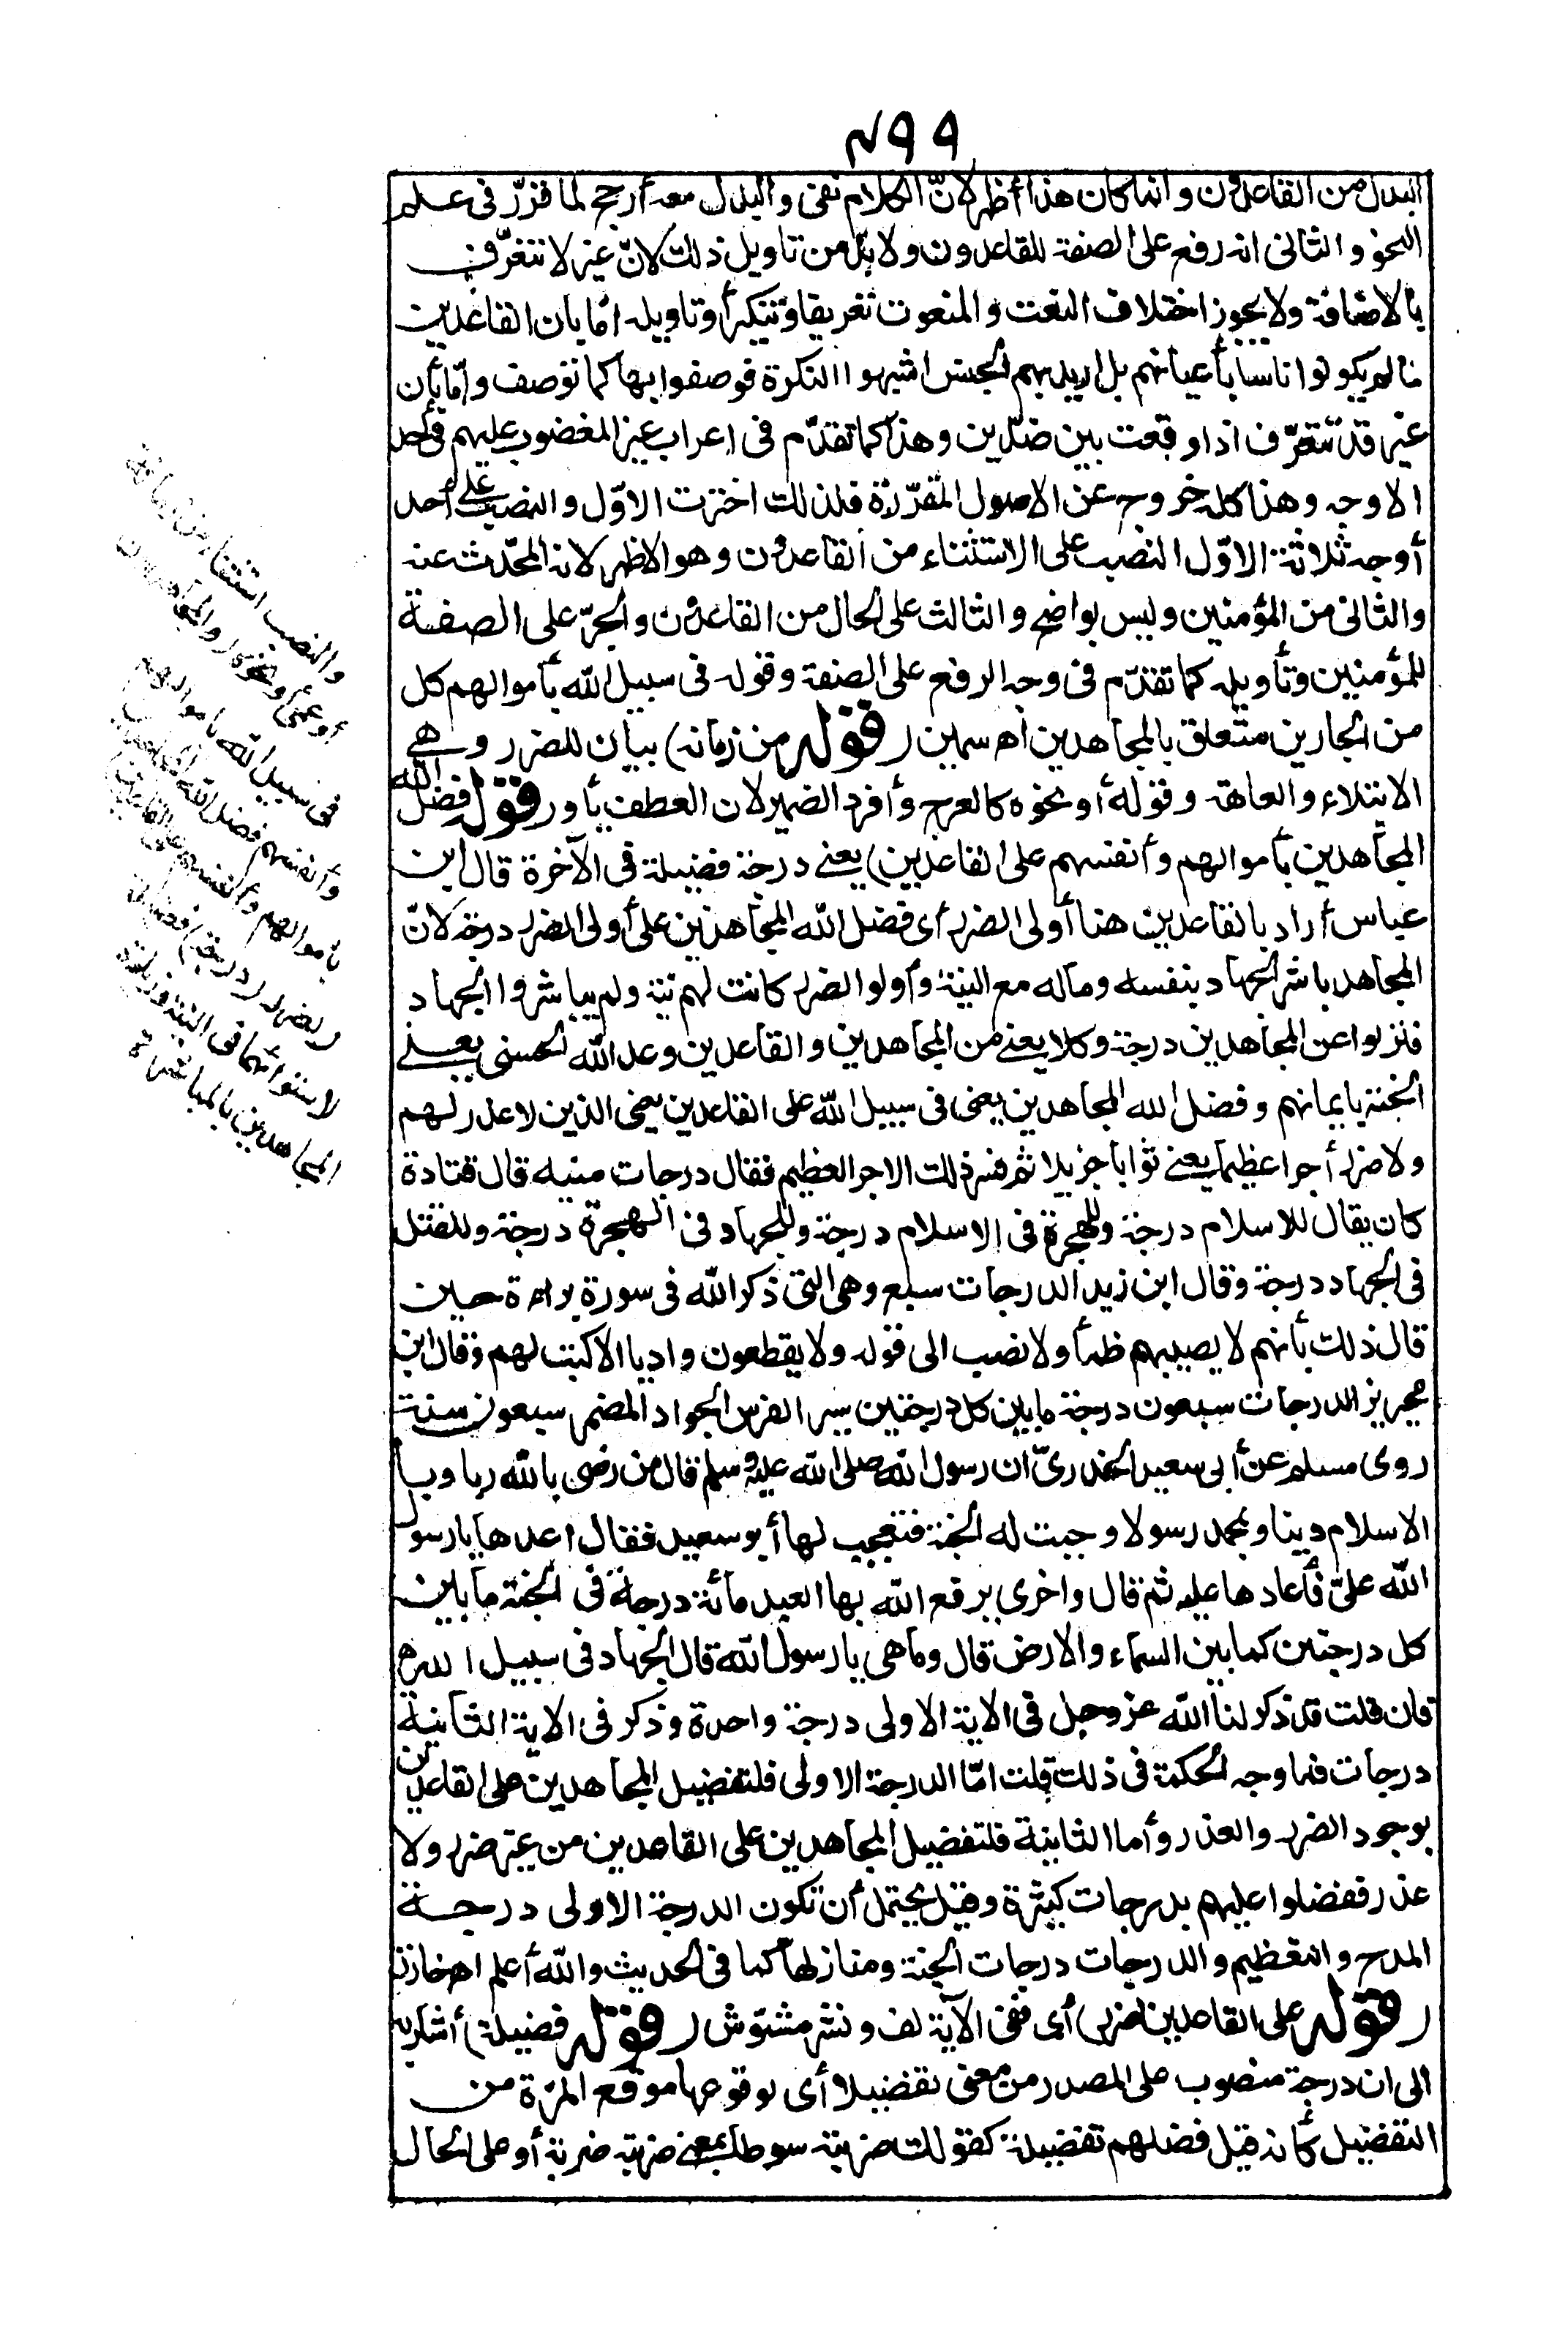 ٤٩٩
البدل من القاعدون وانما كان هذا أظهر لانّ الكلام نفى والبدل معه أرجح لما قرّر فى علم
النحو والثانى انه رفع على الصفة للقاعدون ولا بدّ من تاويل ذلك لانّ غير لا تتعرّف
بالاضافة ولا يجوز اختلاف النعت والمنعوت تعريفا وتنكيرا وتاويله امّا بان القاعدين
لما لم يكونوا ناسا بأعيانهم بل اريد بهم الجنس اشبهوا النكرة فوصفوا بها كما توصف وامّا بأن
غير قد تتعرّف اذا وقعت بين ضدّين وهذا كما تقدّم فى اعراب غير المغضوب عليهم فى أحد
الاوجه وهذا كله خروج عن الاصول المقرّرة فلذلك اخترت الاوّل والنصب على أحد
أوجه ثلاثة الاوّل النصب على الاستثناء من القاعدون وهو الاظهر لانه المحدّث عنه
والثانى من المؤمنين وليس بواضح والثالث على الحال من القاعدون والجرّ على الصفة
للمؤمنين وتأويله كما تقدّم فى وجه الرفع على الصفة وقوله فى سبيل الله بأموالهم كل
من الجارين متعلق بالمجاهدين اه سمين (قوله من زمانة) بيان للضرر وهى
الابتلاء والعاهة وقوله أو نحوه كالعرج وأفرد الضمير لان العطف بأو (قوله فضل الله
المجاهدين بأموالهم وأنفسهم على القاعدين) يعنى درجة فضيلة فى الآخرة قال ابن
عباس أراد بالقاعدين هنا أولى الضرر أى فضل الله المجاهدين على أولى الضرر درجة لانّ
المجاهد باشر الجهاد بنفسه وماله مع النية وأولوا الضرر كانت لهم نية ولم يباشروا الجهاد
فنزلوا عن المجاهدين درجة وكلا يعنى من المجاهدين والقاعدين وعد الله الحسنى يعنى
الجنة بايمانهم وفضل الله المجاهدين يعنى فى سبيل الله على القاعدين يعنى الذين لا عذر لهم
ولا ضرر أجرا عظيما يعنى ثوابا جزيلا ثم فسر ذلك الاجر العظيم فقال درجات منه قال قتادة
كان يقال للاسلام درجة وللهجرة فى الاسلام درجة وللجهاد فى الهجرة درجة وللقتل
فى الجهاد درجة وقال ابن زيد الدرجات سبع وهى التى ذكر الله فى سورة براءة حين
قال ذلك بأنهم لا يصيبهم ظمأ ولا نصب الى قوله ولا يقطعون واديا الا كتب لهم وقال ابن
محيريز الدرجات سبعون درجة ما بين كل درجتين سير الفرس الجواد المضمر سبعون سنة
روى مسلم عن أبى سعيد الخدرىّ ان رسول الله صلى الله عليه وسلم قال من رضى بالله ربا وبا
الاسلام دينا وبمحمد رسولا وجبت له الجنة فتعجب لها أبو سعيد فقال اعدها يا رسول
الله علىّ فأعادها عليه ثم قال واخرى يرفع الله بها العبد مائة درجة فى الجنة ما بين
كل درجتين كما بين السماء والارض قال وما هى يا رسول الله قال الجهاد فى سبيل الله
فان قلت قد ذكر لنا الله عز وجل فى الاية الاولى درجة واحدة وذكر فى الاية الثانية
درجات فما وجه الحكمة فى ذلك قلت امّا الدرجة الاولى فلتفضيل المجاهدين على القاعدين
بوجود الضرر والعذر وأما الثانية فلتفضيل المجاهدين على القاعدين من غير ضرر ولا
عذر ففضلوا عليهم بدرجات كثيرة وقيل يحتمل أن تكون الدرجة الاولى درجة
المدح والتعظيم والدرجات درجات الجنة ومنازلها كما فى الحديث والله أعلم اه خازن
(قوله على القاعدين لضرر) أى ففى الآية لف ونشر مشوّش (قوله فضيلة) أشار به
الى ان درجة منصوب على المصدر من معنى تفضيلا أى لوقوعها موقع المرّة من
التفضيل كأنه قيل فضلهم تفضيلة كقولك ضربته سوطا بمعنى ضربته ضربة أو على الحال
والنصب استثناء من زمانة
أو عمى أو نحوه والمجاهدون
فى سبيل الله بأموالهم
وأنفسهم فضل الله المجاهدين
بأموالهم وأنفسهم على القاعدين
لضرر (درجة) فضيلة
لاستوائهما فى النية وزيادة
المجاهدين بالمباشرة